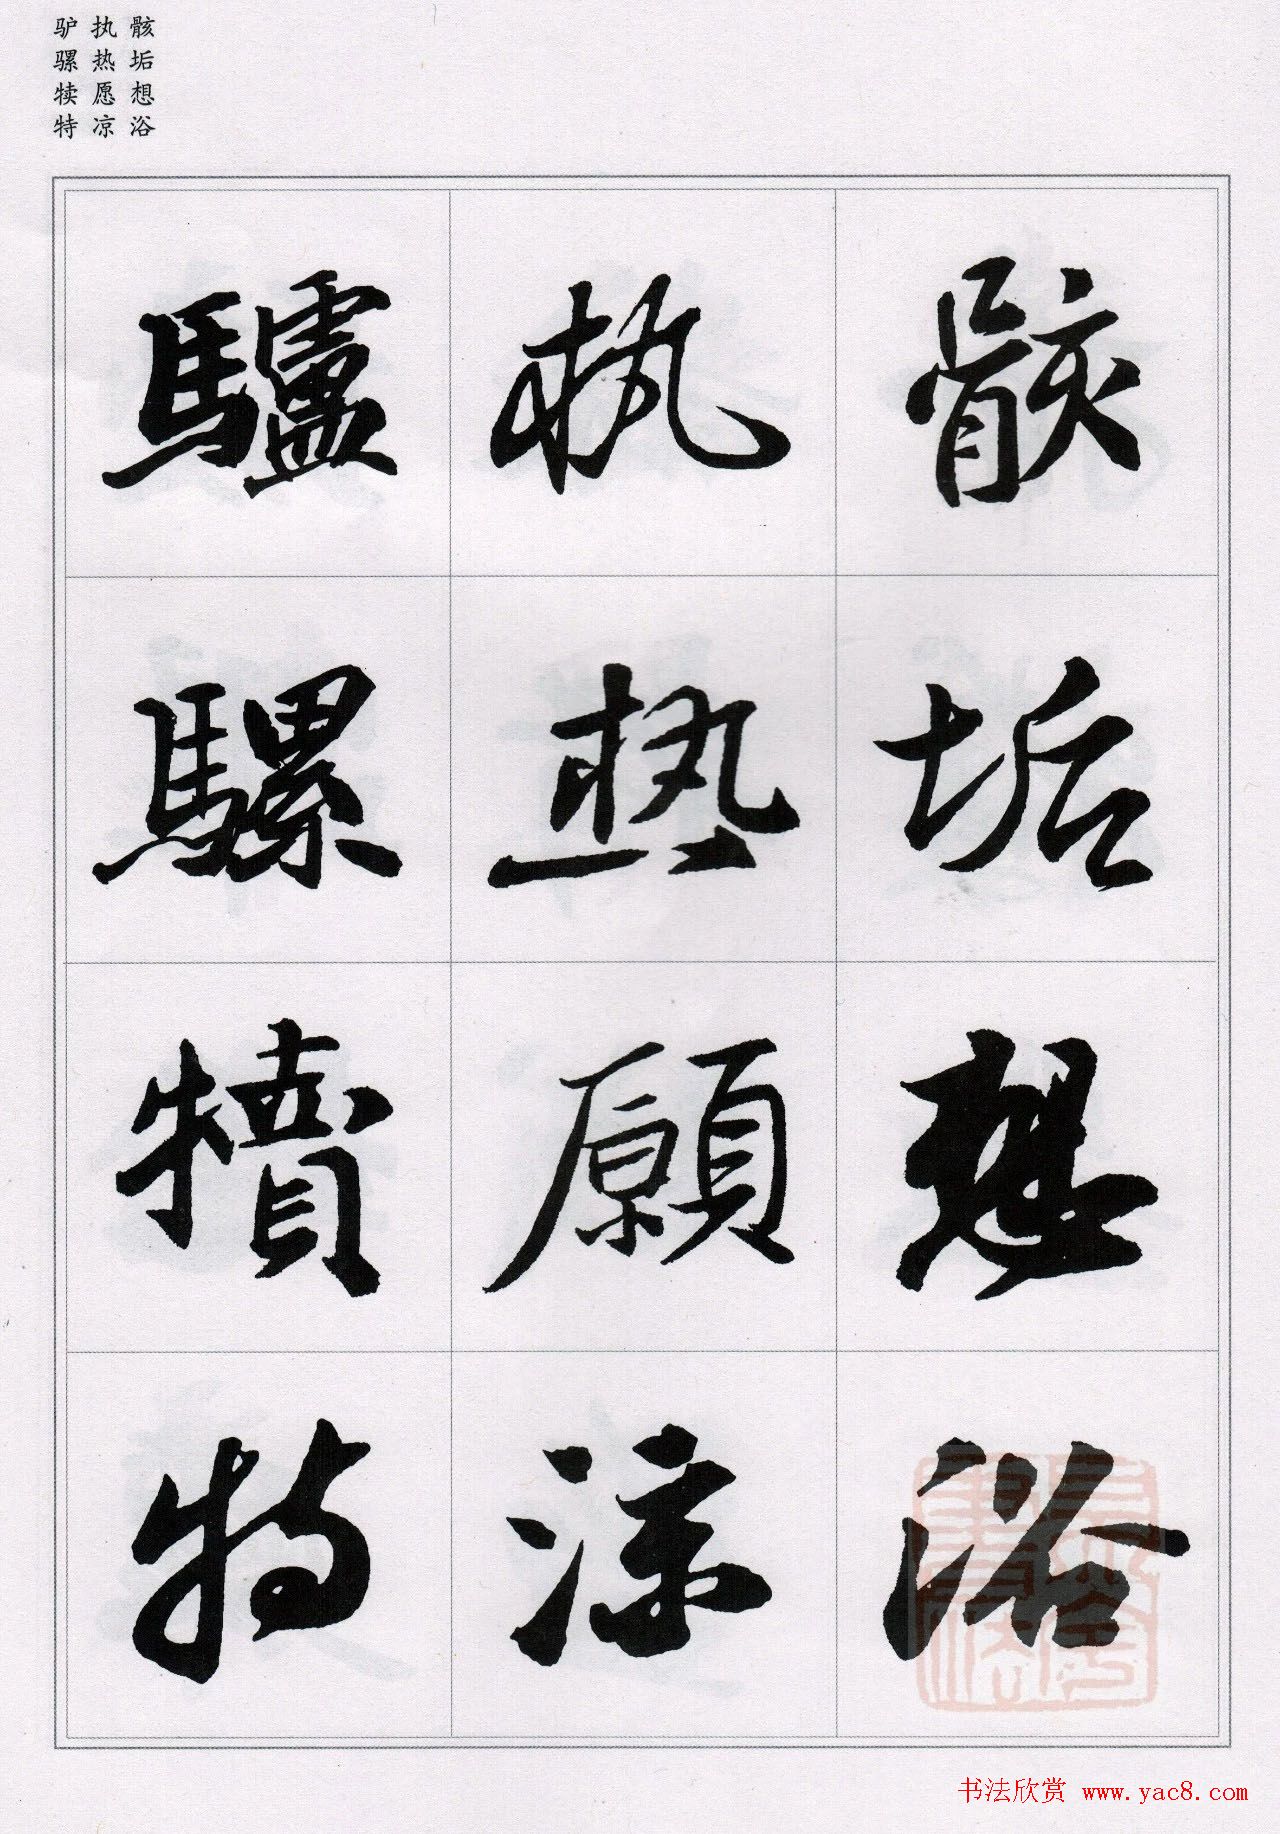 骸垢想浴
执热愿凉
驴骡犊特
骸垢想浴
執熱願涼
驢騾犢特
书法欣赏 www.yac8.com